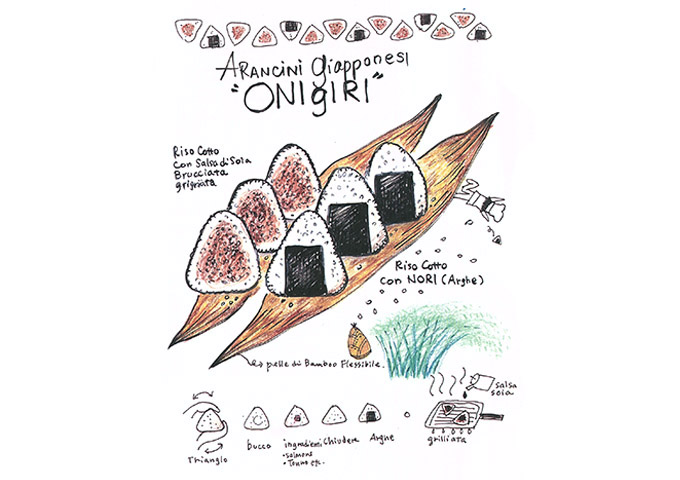 ARANCINI giapponesi
"ONIGIRI"
Riso Cotto
con Salsa di Soia
Brucciata
grigriata
Riso Cotto
con NORI (Arghe)
pelle di Bamboo Flessibile.
salsa
soia
Triangolo
bucco
ingradienti
・salmone
・Tonno etc.
Chiudere
Arghe
grilliata